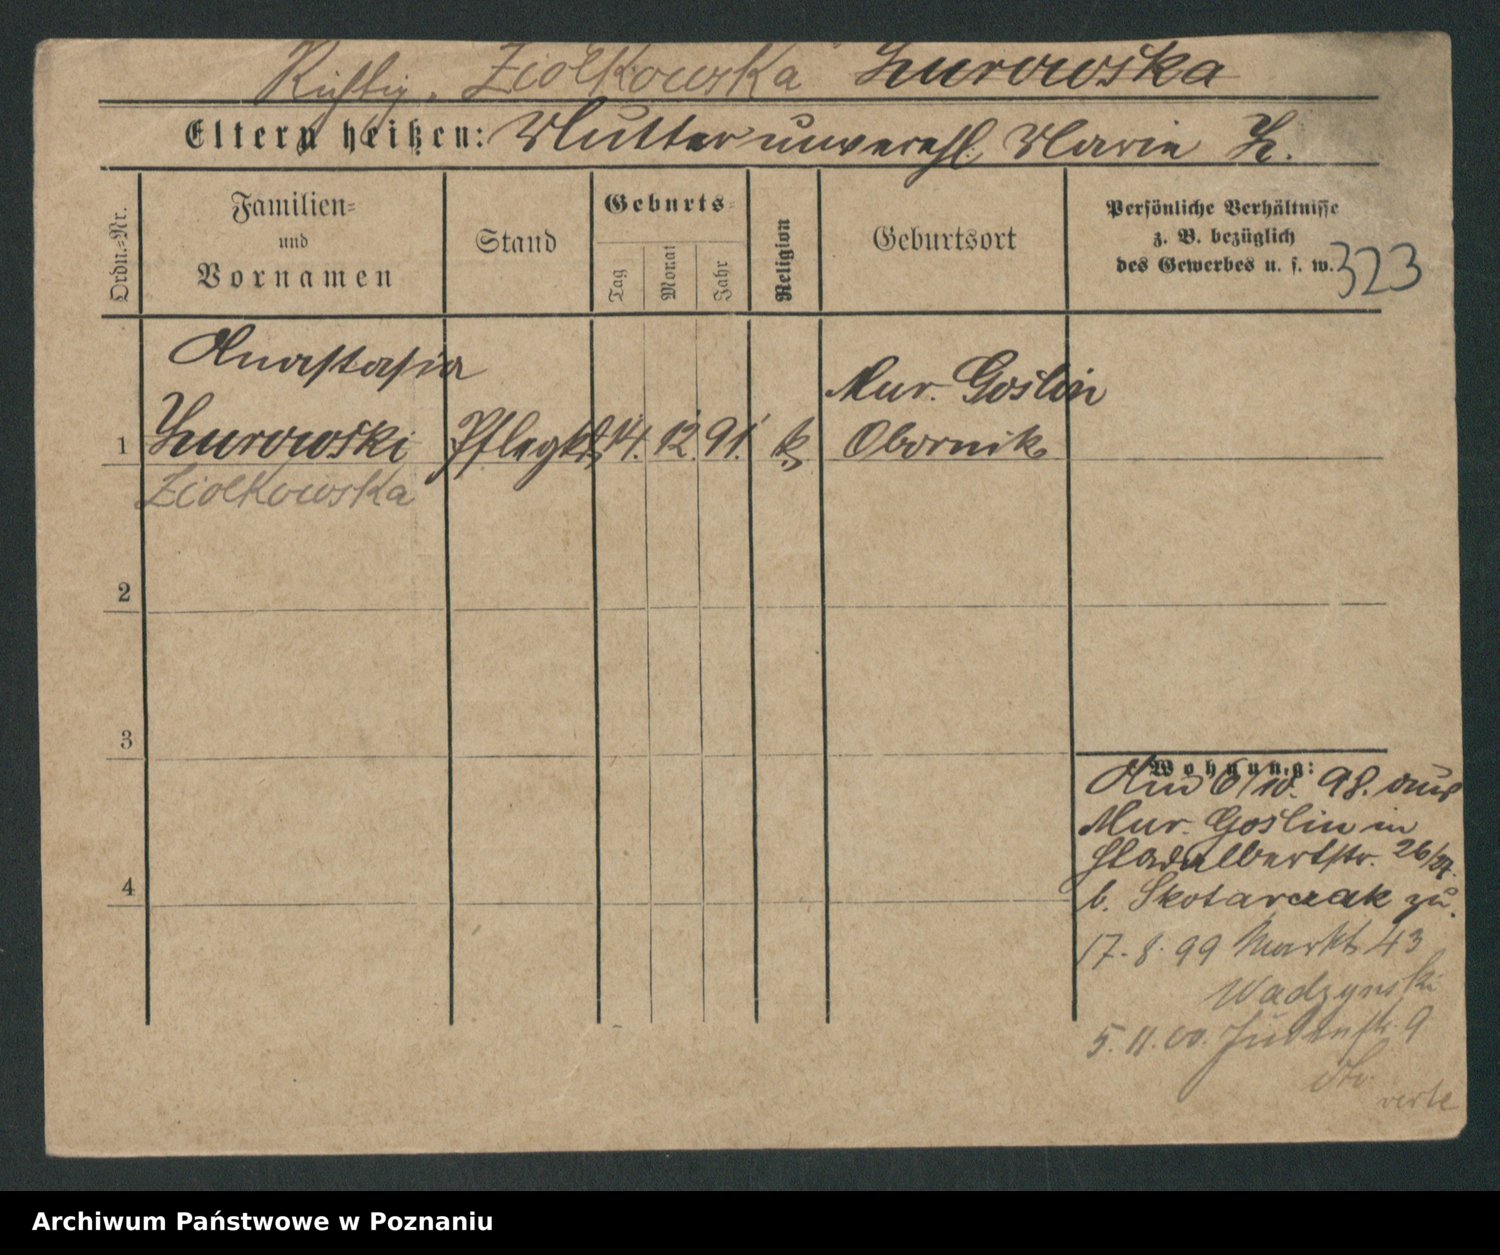 Richtig. Ziolkowska Zurowska
Eltern heißen: Mutter unverehl. Marie Z.
Ordn.=Nr.
Familien=
und
Vornamen
Stand
Geburts=
Tag
Monat
Jahr
Religion
Geburtsort
Persönliche Verhältnisse
z. B. bezüglich
des Gewerbes u. s. w.
323
Anastasia
Mur. Goslin
1 Zurowski Pflegkd 14. 12. 91. k. Obornik
Ziolkowska
2
3
Wohnung:
6/10. 98. aus
Mur. Goslin in
4
b. Skotarczak zu.
17. 8. 99 Markt 43
Wadzynski
5. 11. 00. Judenstr. 9
verte
Archiwum Państwowe w Poznaniu